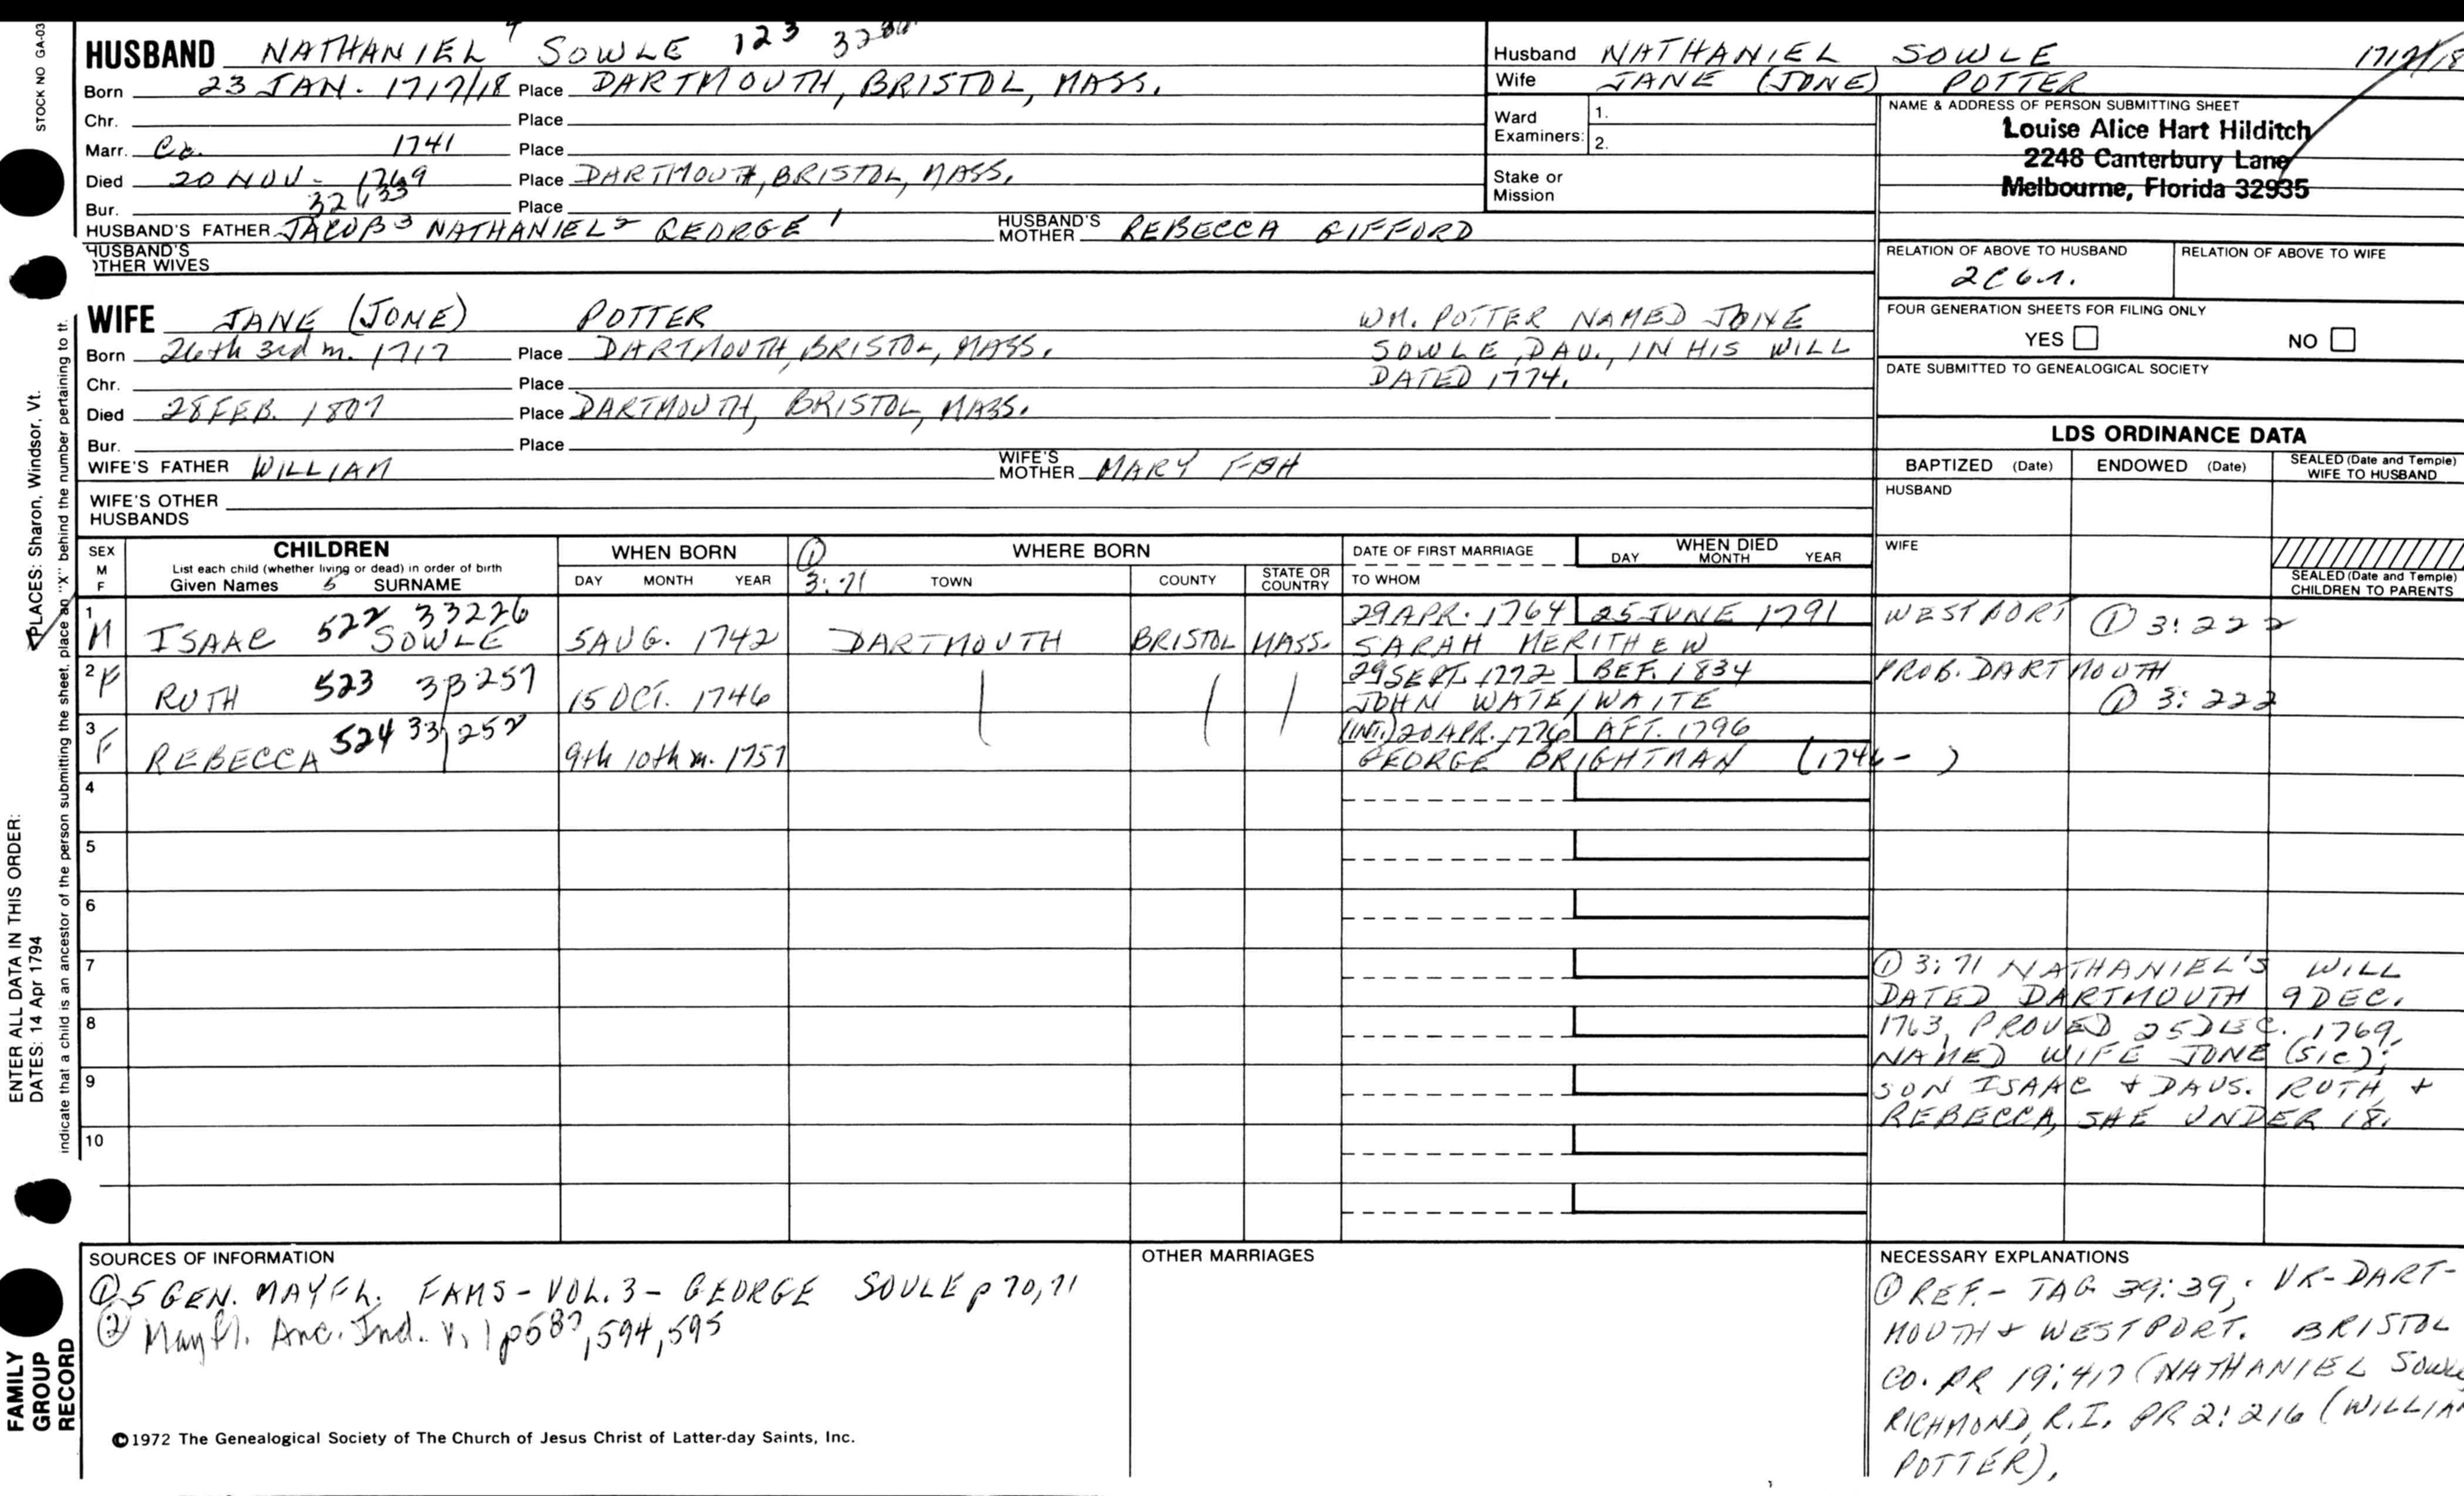 STOCK NO GA-03
HUSBAND NATHANIEL 4 SOWLE 123
Born 23 JAN. 1717/18 Place DARTMOUTH, BRISTOL, MASS.
Chr. Place
Marr. Ca. 1741 Place
Died 20 NOV. 1769 Place DARTMOUTH, BRISTOL, MASS.
Bur. Place
HUSBAND'S FATHER JACOB 3 NATHANIEL 2 GEORGE 1 HUSBAND'S MOTHER REBECCA GIFFORD
HUSBAND'S OTHER WIVES
Husband NATHANIEL SOWLE 1717/18
Wife JANE (JONE) POTTER
Ward Examiners: 1.
2.
Stake or Mission
NAME & ADDRESS OF PERSON SUBMITTING SHEET
Louise Alice Hart Hilditch
2248 Canterbury Lane
Melbourne, Florida 32935
RELATION OF ABOVE TO HUSBAND RELATION OF ABOVE TO WIFE
2C6r.
FOUR GENERATION SHEETS FOR FILING ONLY
YES NO
DATE SUBMITTED TO GENEALOGICAL SOCIETY
WIFE JANE (JONE) POTTER
Born 26th 3rd m. 1717 Place DARTMOUTH, BRISTOL, MASS.
Chr. Place
Died 28 FEB. 1807 Place DARTMOUTH, BRISTOL, MASS.
Bur. Place
WIFE'S FATHER WILLIAM WIFE'S MOTHER MARY FISH
WIFE'S OTHER HUSBANDS
WM. POTTER NAMED JONE
SOWLE, DAU., IN HIS WILL
DATED 1774.
LDS ORDINANCE DATA
BAPTIZED (Date) ENDOWED (Date) SEALED (Date and Temple) WIFE TO HUSBAND
HUSBAND
WIFE
SEALED (Date and Temple) CHILDREN TO PARENTS
SEX M F
CHILDREN
List each child (whether living or dead) in order of birth
Given Names 5 SURNAME
WHEN BORN
DAY MONTH YEAR
① 3:71
WHERE BORN
TOWN COUNTY STATE OR COUNTRY
DATE OF FIRST MARRIAGE
TO WHOM
WHEN DIED
DAY MONTH YEAR
1 M ISAAC 522 33226 SOWLE 5 AUG. 1742 DARTMOUTH BRISTOL MASS. 29 APR. 1764 25 JUNE 1791 WESTPORT ① 3:222
SARAH MERITHEW
2 F RUTH 523 15 OCT. 1746 29 SEPT. 1772 BEF. 1834 PROB. DARTMOUTH
JOHN WATE/WAITE ① 3:222
3 F REBECCA 524 9th 10th m. 1757 (INT.) 20 APR. 1776 AFT. 1796
GEORGE BRIGHTMAN (1746- )
4
5
6
7
8
9
10
① 3:71 NATHANIEL'S WILL
DATED DARTMOUTH 9 DEC.
1763, PROVED 25 DEC. 1769,
NAMED WIFE JONE (sic);
SON ISAAC & DAUS. RUTH &
REBECCA, SHE UNDER 18.
SOURCES OF INFORMATION
① 5 GEN. MAYFL. FAMS - VOL. 3 - GEORGE SOULE p 70, 71
② Mayfl. Anc. Ind. V. 1 p587, 594, 595
OTHER MARRIAGES
NECESSARY EXPLANATIONS
① REF. - TAG 39:39, VR-DART-
MOUTH & WESTPORT. BRISTOL
CO. PR 19:417 (NATHANIEL Sowle
RICHMOND, R.I. PR 2:216 (WILLIAM
POTTER).
©1972 The Genealogical Society of The Church of Jesus Christ of Latter-day Saints, Inc.
FAMILY GROUP RECORD
ENTER ALL DATA IN THIS ORDER:
DATES: 14 Apr 1794
PLACES: Sharon, Windsor, Vt.
indicate that a child is an ancestor of the person submitting the sheet, place an "X" behind the number pertaining to